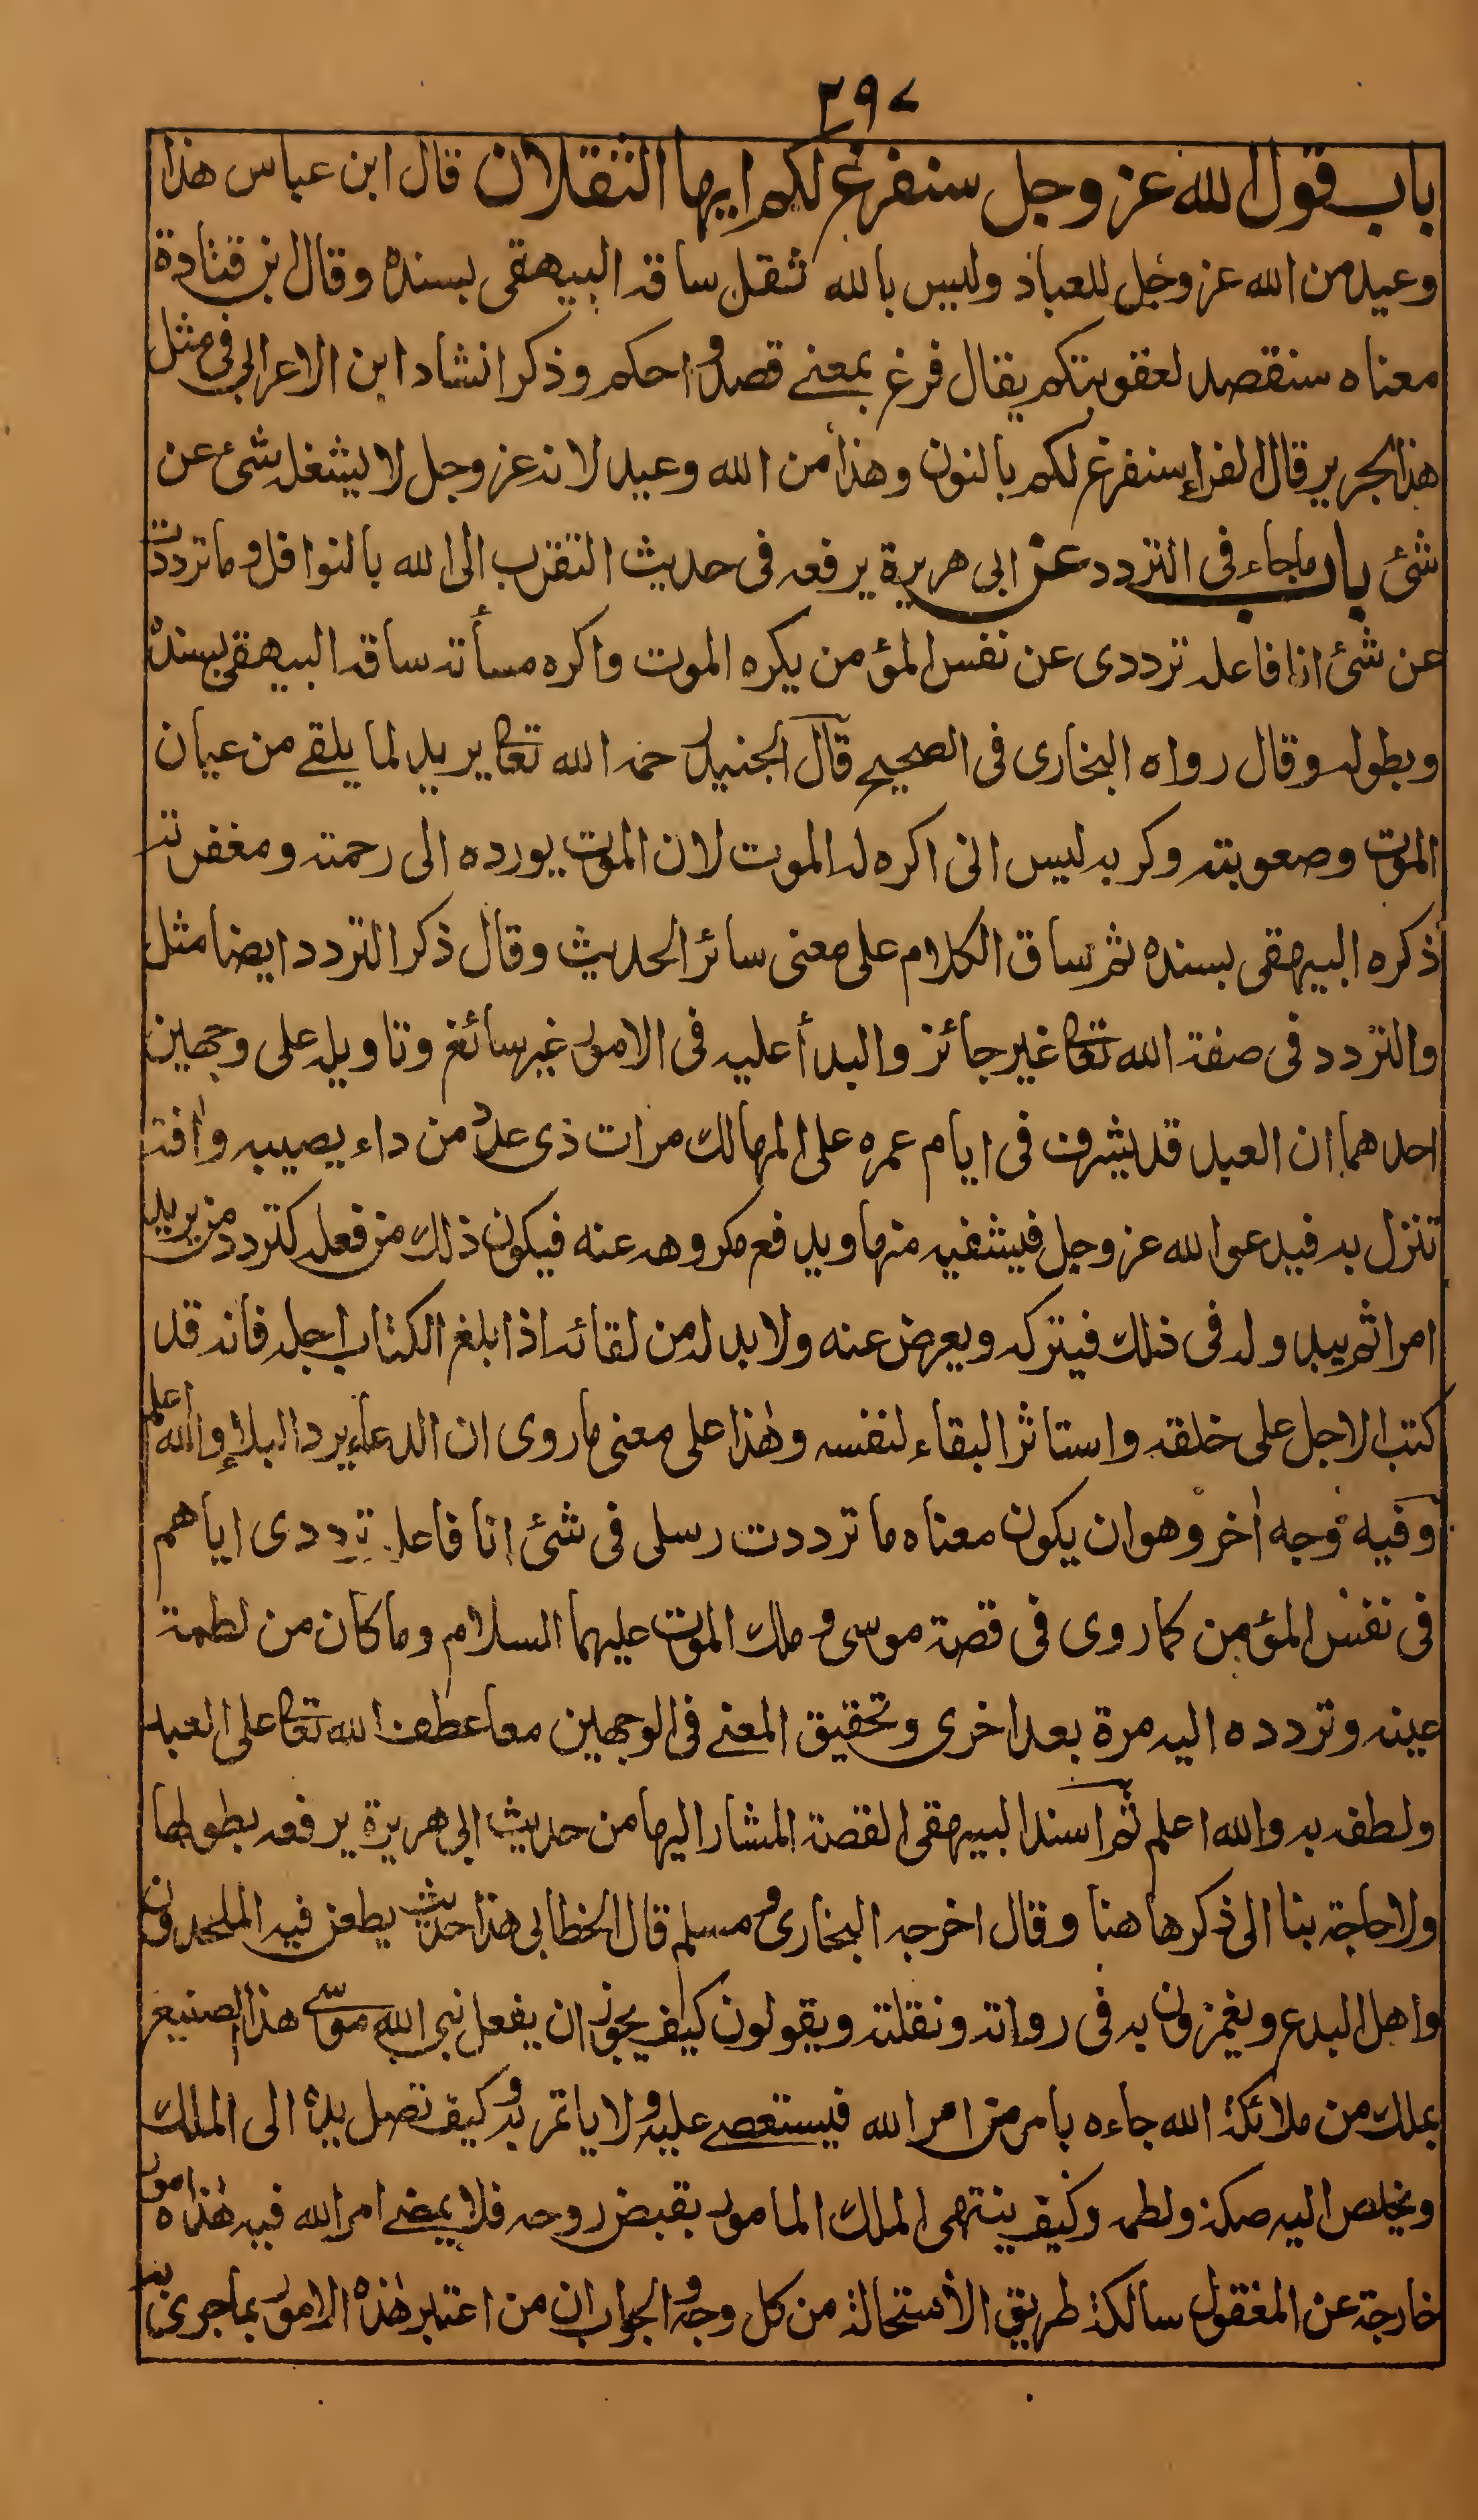 ٢٩٧
باب قول الله عز وجل سنفرغ لكم ايها الثقلان قال ابن عباس هذا
وعيد من الله عز وجل للعباد وليس بالله ثقل ساقه البيهقى بسنده وقال ابن قتادة
معناه سنقصد لعقوبتكم يقال فرغ بمعنے قصد و احكم وذكر انشاد ابن الاعرابى فى مثل
هذا لجرير قال الفراء سنفرغ لكم بالنون وهذا من الله وعيد لانه عز وجل لا يشغله شئ عن
شئ باب ماجاء فى التردد عن ابى هريرة يرفعه فى حديث التقرب الى الله بالنوافل وما ترددت
عن شئ انا فاعله ترددى عن نفس المؤمن يكره الموت واكره مسأته ساقه البيهقى بسنده
وبطوله وقال رواه البخارى فى الصحيح قال الجنيد رحمه الله تعالى يريد لما يلقے من عيان
الموت وصعوبته وكربه ليس انى اكره له الموت لان الموت يورده الى رحمته ومغفرته
ذكره البيهقى بسنده ثم ساق الكلام على معنى سائر الحديث وقال ذكر التردد ايضا مثل
والتردد فى صفة الله تعالى غير جائز والبدأ عليه فى الامور غير سائغ وتاويله على وجهين
احدهما ان العبد قد يشرف فى ايام عمره على المهالك مرات ذى عدد من داء يصيبه وآفة
تنزل به فيدعو الله عز وجل فيشفيه منها ويدفع مكروهه عنه فيكون ذلك من فعله كتردد من يريد
امرا ثم يبدو له فى ذلك فيتركه ويعرض عنه ولا بد له من لقائه اذا بلغ الكتاب اجله فانه قد
كتب الاجل على خلقه واستاثر البقاء لنفسه وهٰذا على معنى ما روى ان الدعاء يرد البلاء والله اعلم
وفيه وجه اٰخر وهو ان يكون معناه ما ترددت رسلى فى شئ انا فاعله ترددى اياهم
فى نفس المؤمن كما روى فى قصة موسى و ملك الموت عليهما السلام وما كان من لطمة
عينه وتردده اليه مرة بعد اخرى وتحقيق المعنے فى الوجهين معا عطف الله تعالى على العبد
ولطفه به والله اعلم ثم اسند البيهقى القصة المشار اليها من حديث ابى هريرة يرفعه بطولها
ولا حاجة بنا الى ذكرها هنا وقال اخرجه البخارى و مسلم قال الخطابى هذا حديث يطعن فيه الملحدون
واهل البدع ويغمزون به فى رواته ونقلته ويقولون كيف يجوز ان يفعل نبى الله موسٰى هذا الصنيع
بملك من ملائكة الله جاءه بامر من امر الله فيستعصے عليه ولا ياتمر به وكيف تصل يده الى الملك
ويخلص اليه صكه ولطمه وكيف ينتهى الملك المامور بقبض روحه فلا يمضے امر الله فيه هٰذه امور
خارجة عن المعقول سالكة طريق الاستحالة من كل وجه والجواب ان من اعتبر هٰذه الامور بما جرى به